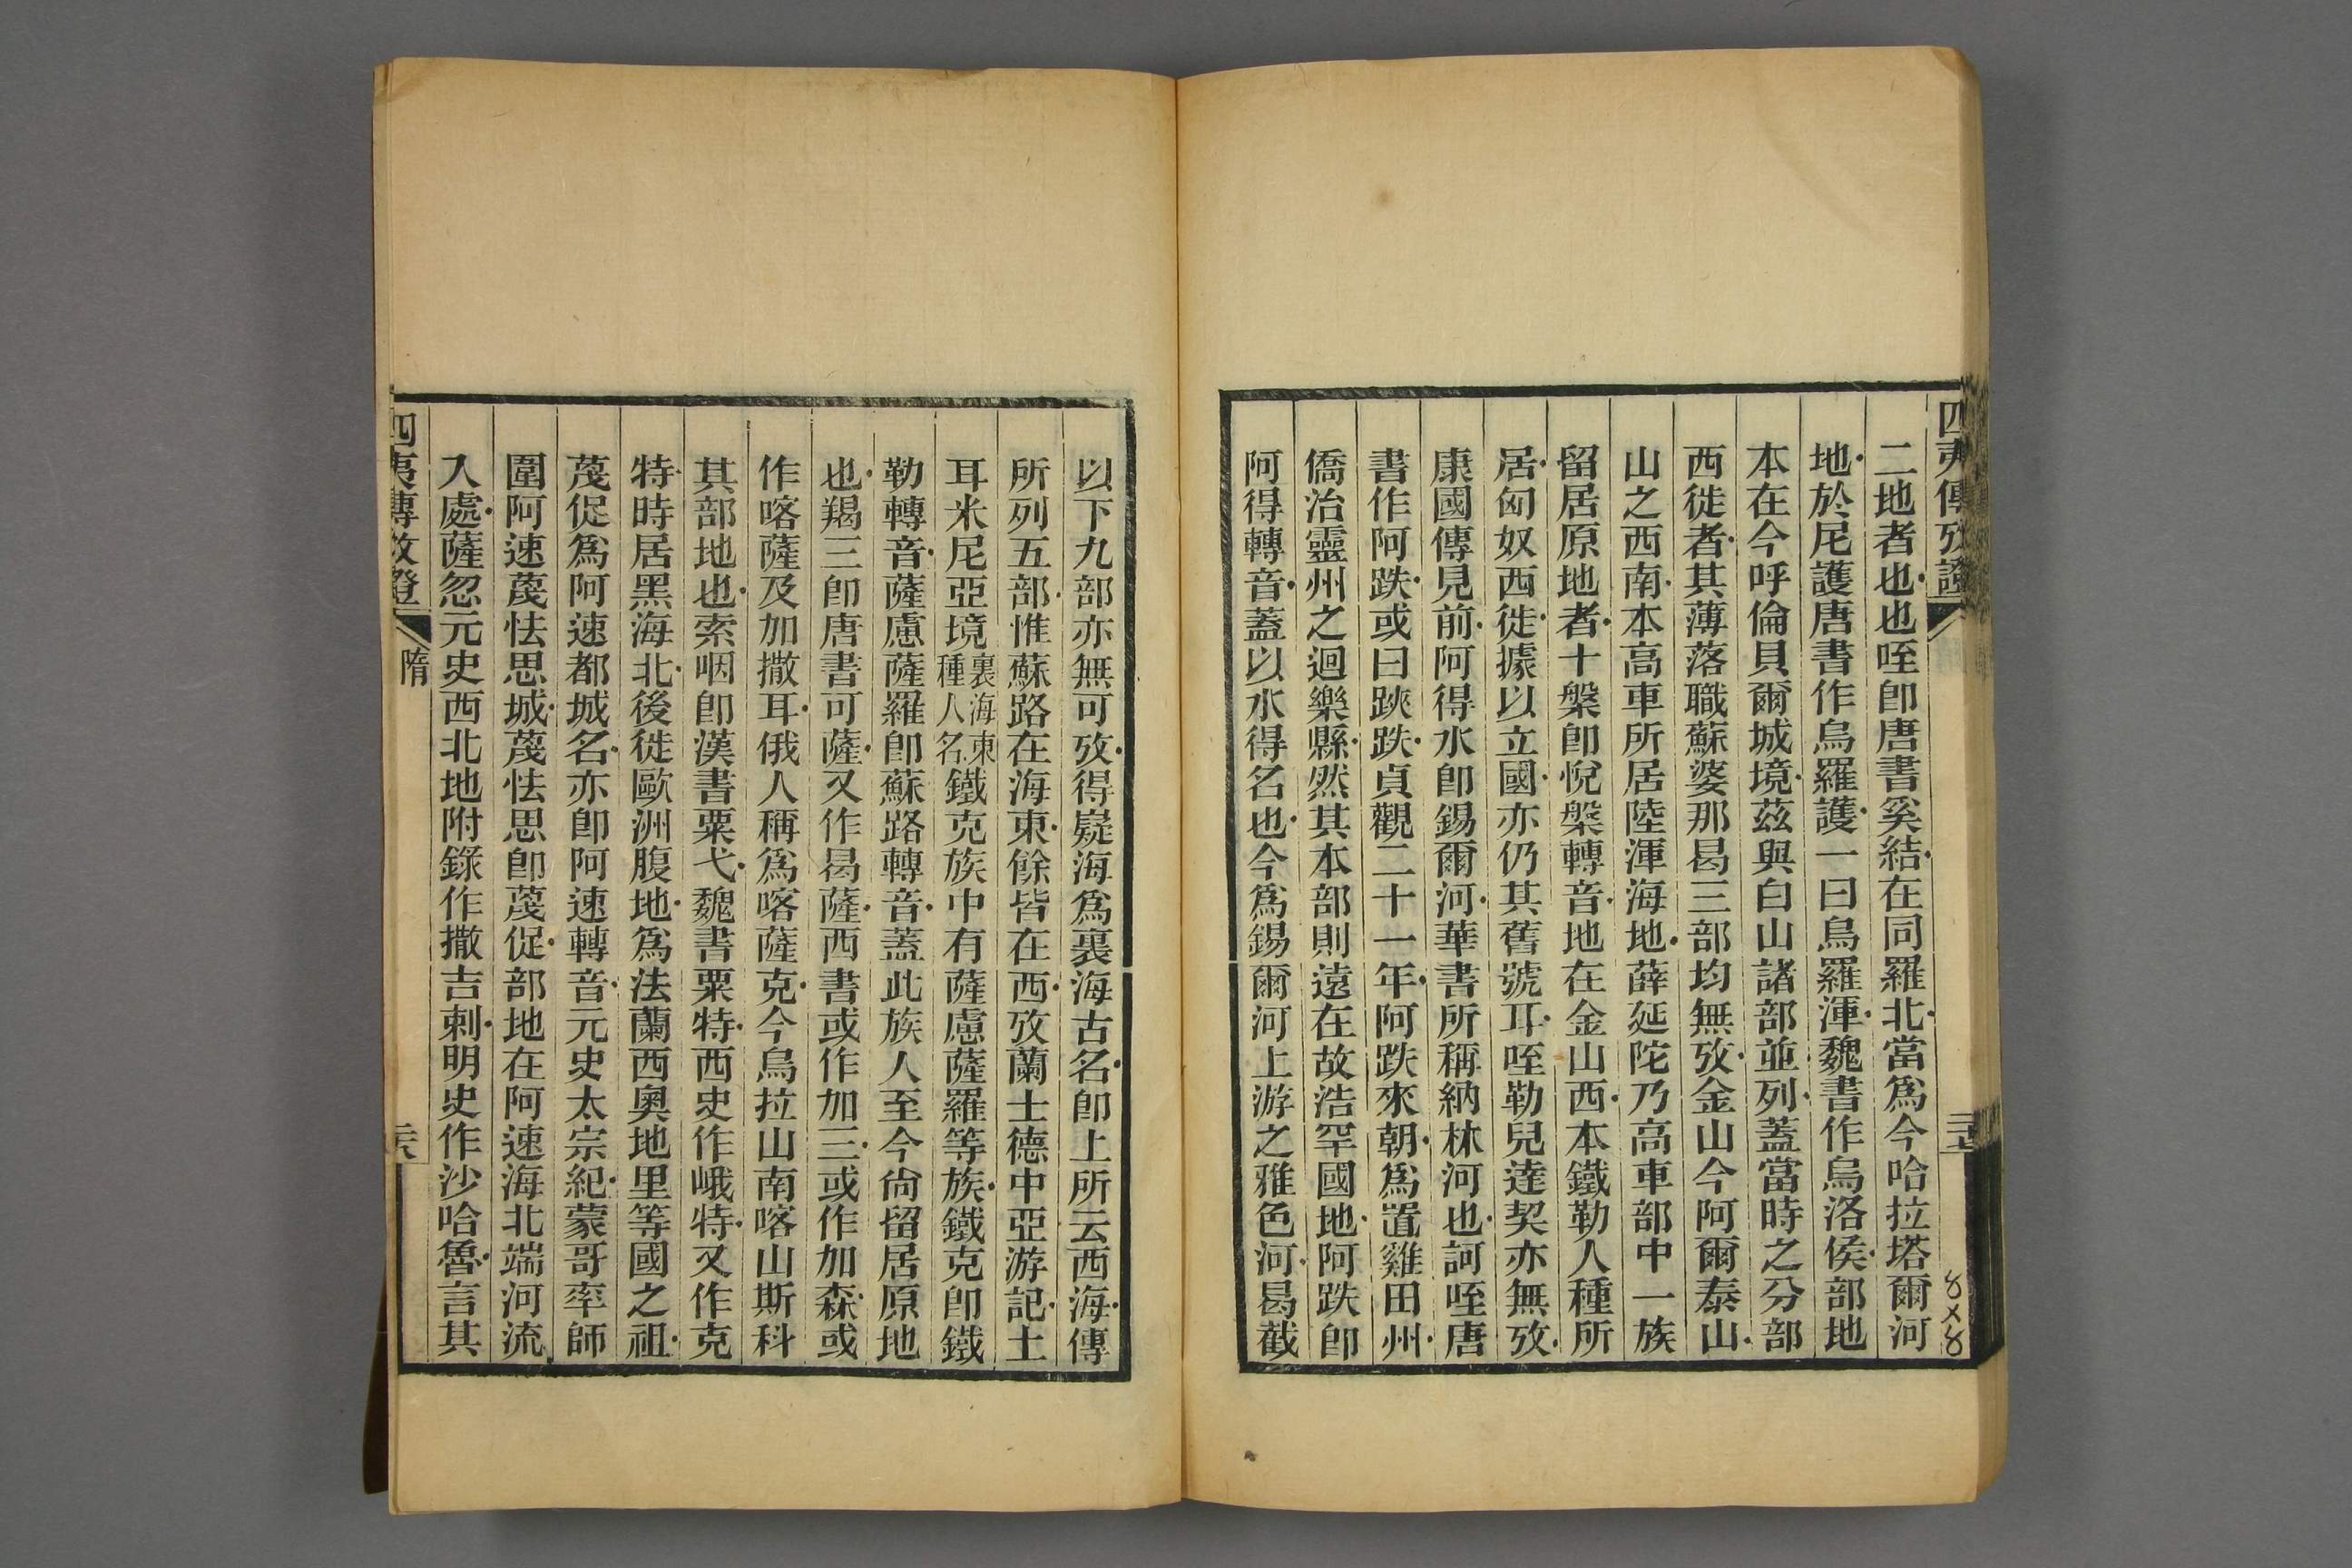 四夷傳攷證
二地者也也咥卽唐書奚結在同羅北當爲今哈拉塔爾河
地於尼護唐書作烏羅護一曰烏羅渾魏書作烏洛侯部地
本在今呼倫貝爾城境茲與白山諸部並列蓋當時之分部
西徙者其薄落職蘇婆那曷三部均無攷金山今阿爾泰山
山之西南本高車所居陸渾海地薛延陀乃高車部中一族
留居原地者十槃卽悅槃轉音地在金山西本鐵勒人種所
居匈奴西徙據以立國亦仍其舊號耳咥勒兒達契亦無攷
康國傳見前阿得水卽錫爾河華書所稱納林河也訶咥唐
書作阿跌或曰䟴跌貞觀二十一年阿跌來朝爲置雞田州
僑治靈州之迴樂縣然其本部則遠在故浩罕國地阿跌卽
阿得轉音蓋以水得名也今爲錫爾河上游之雅色河曷截
二十七
8×8
以下九部亦無可攷得嶷海爲裏海古名卽上所云西海傳
所列五部惟蘇路在海東餘皆在西攷蘭士德中亞游記土
耳米尼亞境裏海東種人名鐵克族中有薩慮薩羅等族鐵克卽鐵
勒轉音薩慮薩羅卽蘇路轉音蓋此族人至今尙留居原地
也羯三卽唐書可薩又作曷薩西書或作加三或作加森或
作喀薩及加撒耳俄人稱爲喀薩克今烏拉山南喀山斯科
其部地也索咽卽漢書粟弋魏書粟特西史作峨特又作克
特時居黑海北後徙歐洲腹地爲法蘭西奧地里等國之祖
蔑促爲阿速都城名亦卽阿速轉音元史太宗紀蒙哥率師
圍阿速蔑怯思城蔑怯思卽蔑促部地在阿速海北端河流
入處薩忽元史西北地附錄作撒吉剌明史作沙哈魯言其
四夷傳攷證
隋
二十八